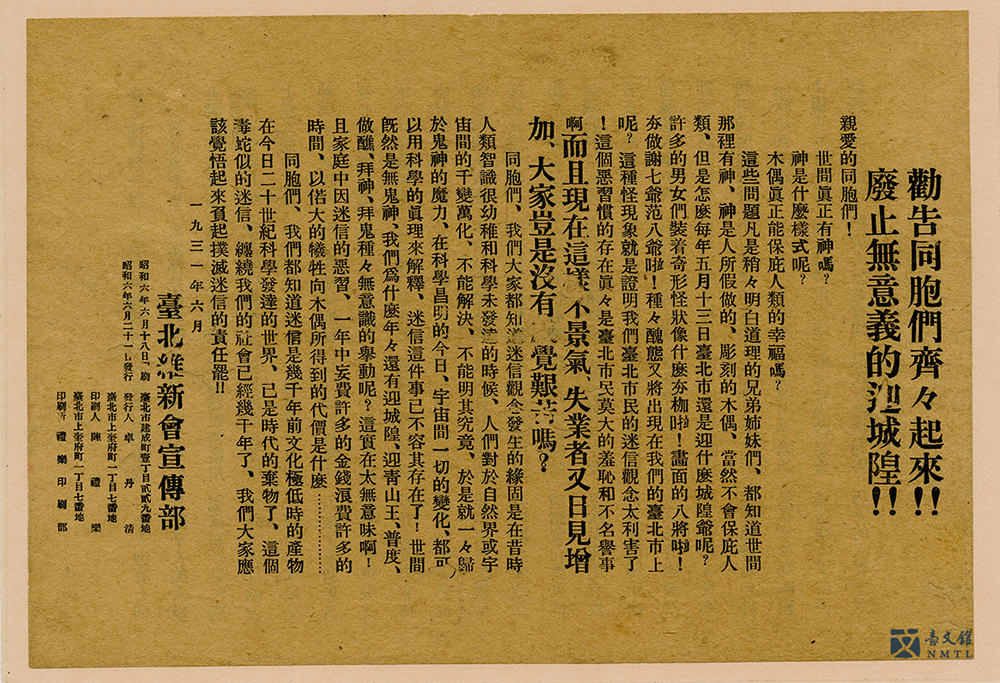 勸告同胞們齊々起來!!
廢止無意義的迎城隍!!
親愛的同胞們!
世間眞正有神嗎?
神是什麼樣式呢?
木偶眞正能保庇人類的幸福嗎?
這些問題凡是稍々明白道理的兄弟姊妹們、都知道世間
那裡有神、神是人所假做的、彫刻的木偶、當然不會保庇人
類、但是怎麼每年五月十三日臺北市還是迎什麼城隍爺呢?
許多的男女們裝着奇形怪狀像什麼夯枷啦!畵面的八將啦!
夯做謝七爺范八爺啦!種々醜態又將出現在我們的臺北市上
呢?這種怪現象就是證明我們臺北市民的迷信觀念太利害了
!這個惡習慣的存在眞々是臺北市民莫大的羞恥和不名譽事
啊而且現在這樣不景氣、失業者又日見增
加、大家豈是沒有 覺艱苦嗎?
同胞們、我們大家都知道迷信觀念發生的緣固是在昔時
人類智識很幼稚和科學未發達的時候、人們對於自然界或宇
宙間的千變萬化、不能解決、不能明其究竟、於是就一々歸
於鬼神的魔力、在科學昌明的今日、宇宙間一切的變化、都可
以用科學的眞理來解釋、迷信這件事已不容其存在了!世間
旣然是無鬼神、我們爲什麼年々還有迎城隍、迎靑山王、普度、
做醮、拜神、拜鬼種々無意識的擧動呢?這實在太無意味啊!
且家庭中因迷信的惡習、一年中妄費許多的金錢浪費許多的
時間、以偌大的犧牲向木偶所得到的代價是什麼…………
同胞們、我們都知道迷信是幾千年前文化極低時的產物
在今日二十世紀科學發達的世界、已是時代的棄物了、這個
毒蛇似的迷信、纏繞我們的社會已經幾千年了、我們大家應
該覺悟起來負起撲滅迷信的責任罷!!
一九三一年六月
臺北維新會宣傳部
昭和六年六月十八日 刷
昭和六年六月二十一日發行
臺北市建成町壹丁目貳貳九番地
發行人 卓丹淸
臺北市上奎府町一丁目七番地
印刷人 陳禮樂
臺北市上奎府町一丁目七番地
印刷所 禮樂印刷部
臺文館
NMTL